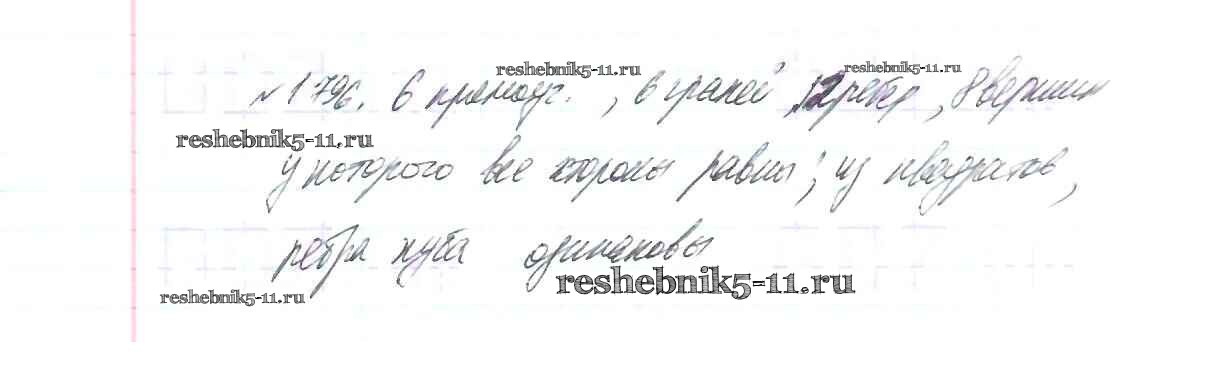 reshebnik5-11.ru reshebnik5-11.ru
№1796. 6 прямоуг. , 6 граней, 12 ребер, 8 вершин
reshebnik5-11.ru
у которого все стороны равны; из квадратов,
ребра куба одинаковы
reshebnik5-11.ru
reshebnik5-11.ru